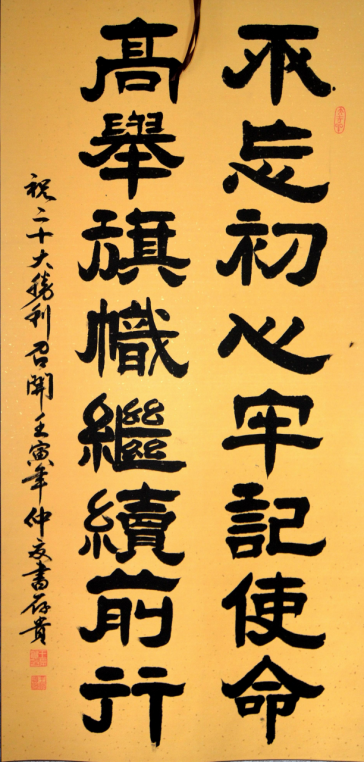 不忘初心牢記使命
高舉旗幟繼續前行
祝二十大勝利召開壬寅年仲夏書存貴